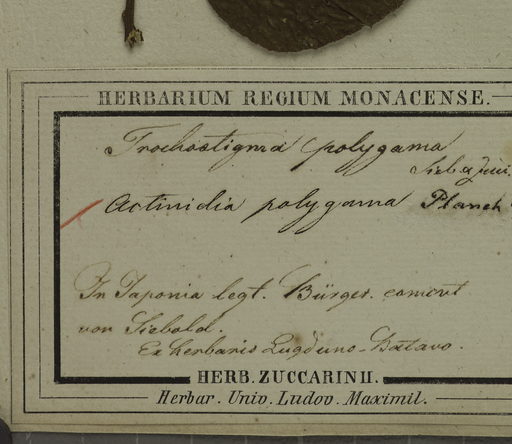 HERBARIUM REGIUM MONACENSE.
Trochostigma polygama
Sieb & Zucc.
Actinidia polygama Planch
In Japonia legt. Bürger.
von Siebold.
Ex herbario Lugduno-Batavo.
HERB. ZUCCARINII.
Herbar. Univ. Ludov. Maximil.